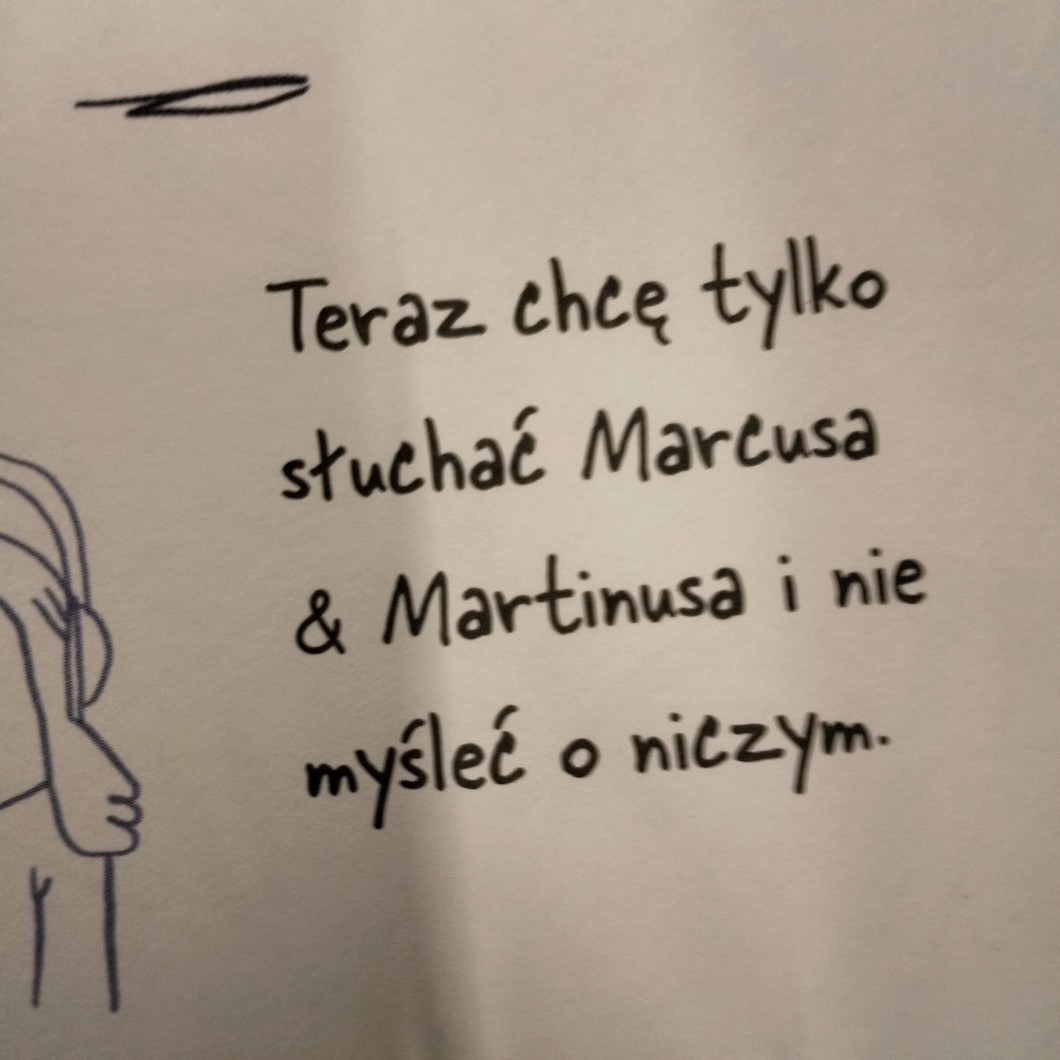 Teraz chcę tylko
słuchać Marcusa
& Martinusa i nie
myśleć o niczym.